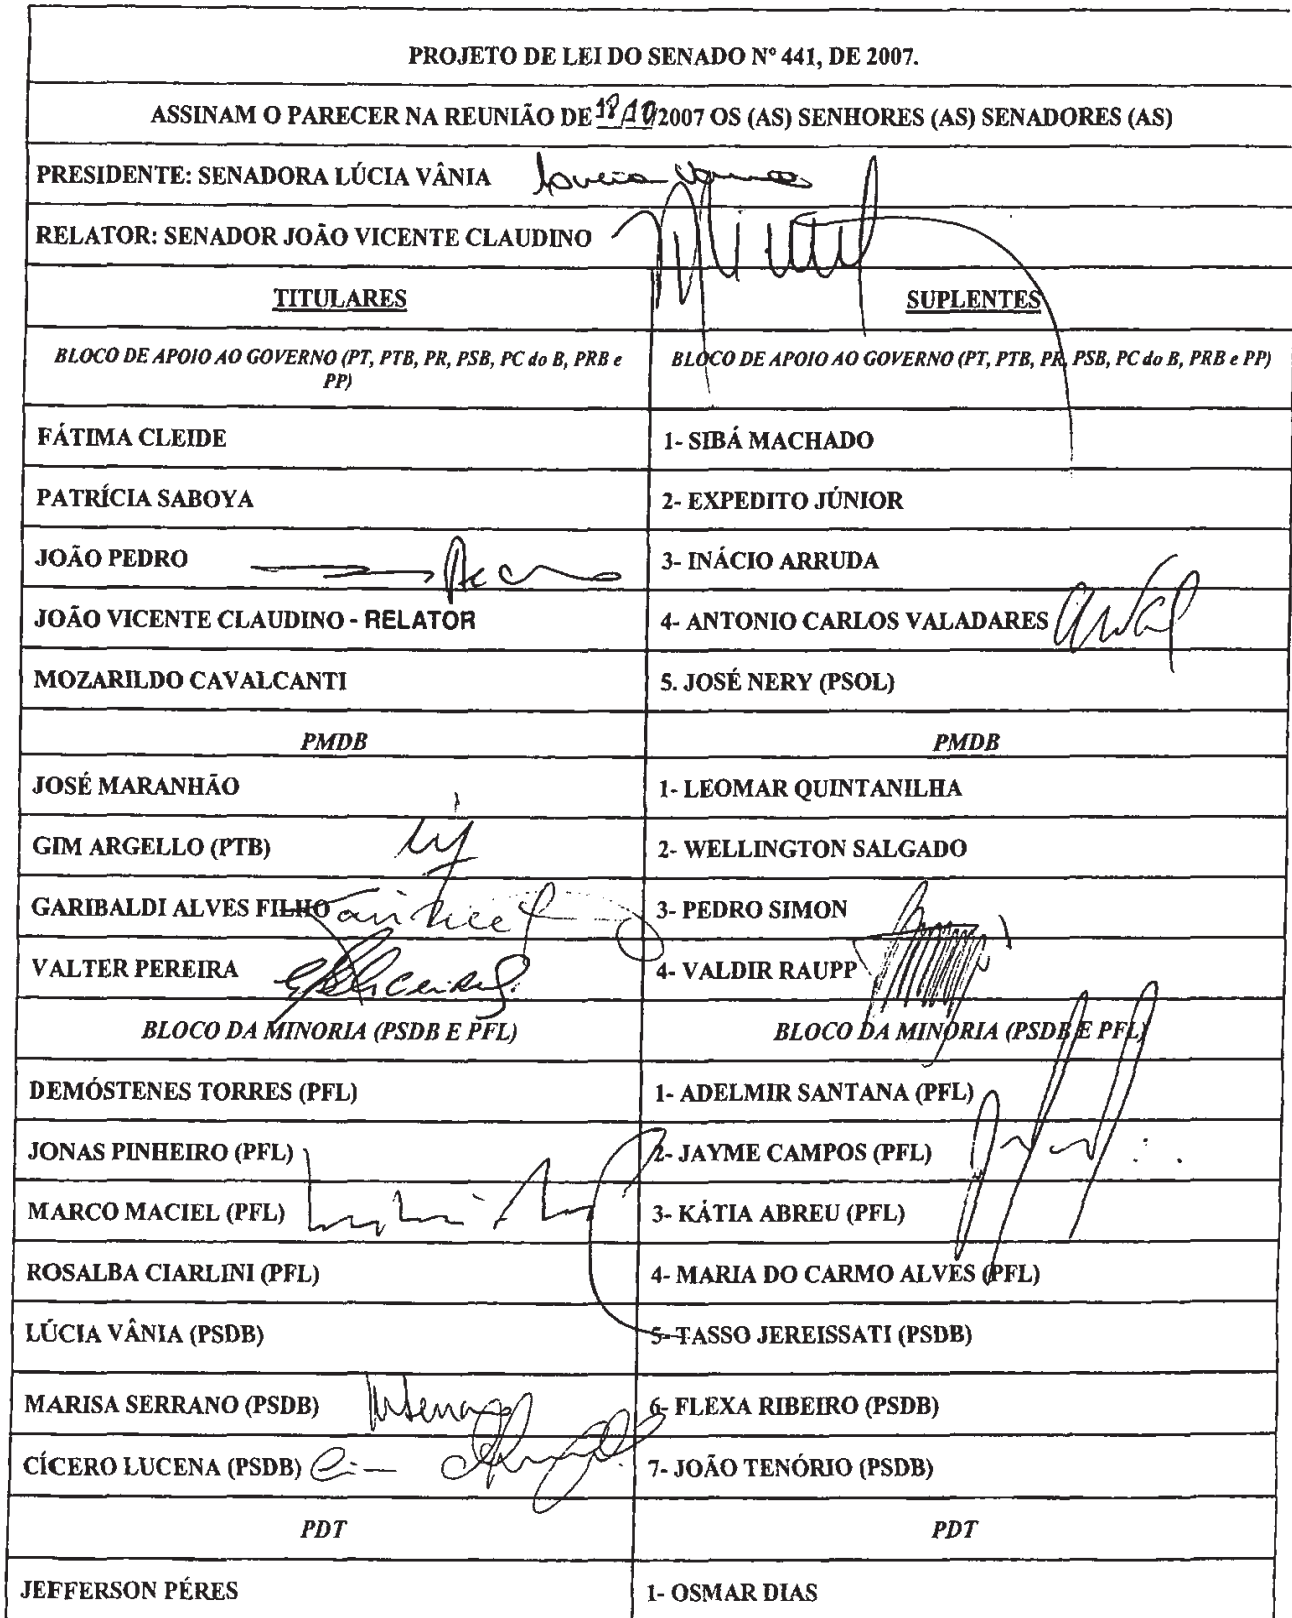 PROJETO DE LEI DO SENADO Nº 441, DE 2007.
ASSINAM O PARECER NA REUNIÃO DE 18/10/2007 OS (AS) SENHORES (AS) SENADORES (AS)
PRESIDENTE: SENADORA LÚCIA VÂNIA
RELATOR: SENADOR JOÃO VICENTE CLAUDINO
TITULARES SUPLENTES
BLOCO DE APOIO AO GOVERNO (PT, PTB, PR, PSB, PC do B, PRB e PP) BLOCO DE APOIO AO GOVERNO (PT, PTB, PR, PSB, PC do B, PRB e PP)
FÁTIMA CLEIDE 1- SIBÁ MACHADO
PATRÍCIA SABOYA 2- EXPEDITO JÚNIOR
JOÃO PEDRO 3- INÁCIO ARRUDA
JOÃO VICENTE CLAUDINO - RELATOR 4- ANTONIO CARLOS VALADARES
MOZARILDO CAVALCANTI 5. JOSÉ NERY (PSOL)
PMDB PMDB
JOSÉ MARANHÃO 1- LEOMAR QUINTANILHA
GIM ARGELLO (PTB) 2- WELLINGTON SALGADO
GARIBALDI ALVES FILHO 3- PEDRO SIMON
VALTER PEREIRA 4- VALDIR RAUPP
BLOCO DA MINORIA (PSDB E PFL) BLOCO DA MINORIA (PSDB E PFL)
DEMÓSTENES TORRES (PFL) 1- ADELMIR SANTANA (PFL)
JONAS PINHEIRO (PFL) 2- JAYME CAMPOS (PFL)
MARCO MACIEL (PFL) 3- KÁTIA ABREU (PFL)
ROSALBA CIARLINI (PFL) 4- MARIA DO CARMO ALVES (PFL)
LÚCIA VÂNIA (PSDB) 5- TASSO JEREISSATI (PSDB)
MARISA SERRANO (PSDB) 6- FLEXA RIBEIRO (PSDB)
CÍCERO LUCENA (PSDB) 7- JOÃO TENÓRIO (PSDB)
PDT PDT
JEFFERSON PÉRES 1- OSMAR DIAS